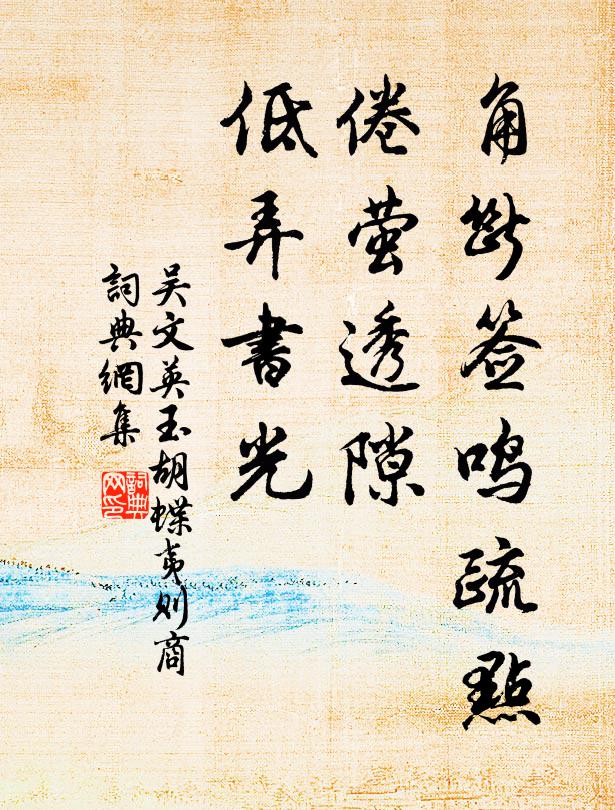 角断签鸣疏點
倦萤透隙
低弄書光
吴文英玉胡蝶夷则商
詞典網集
詞典
网印